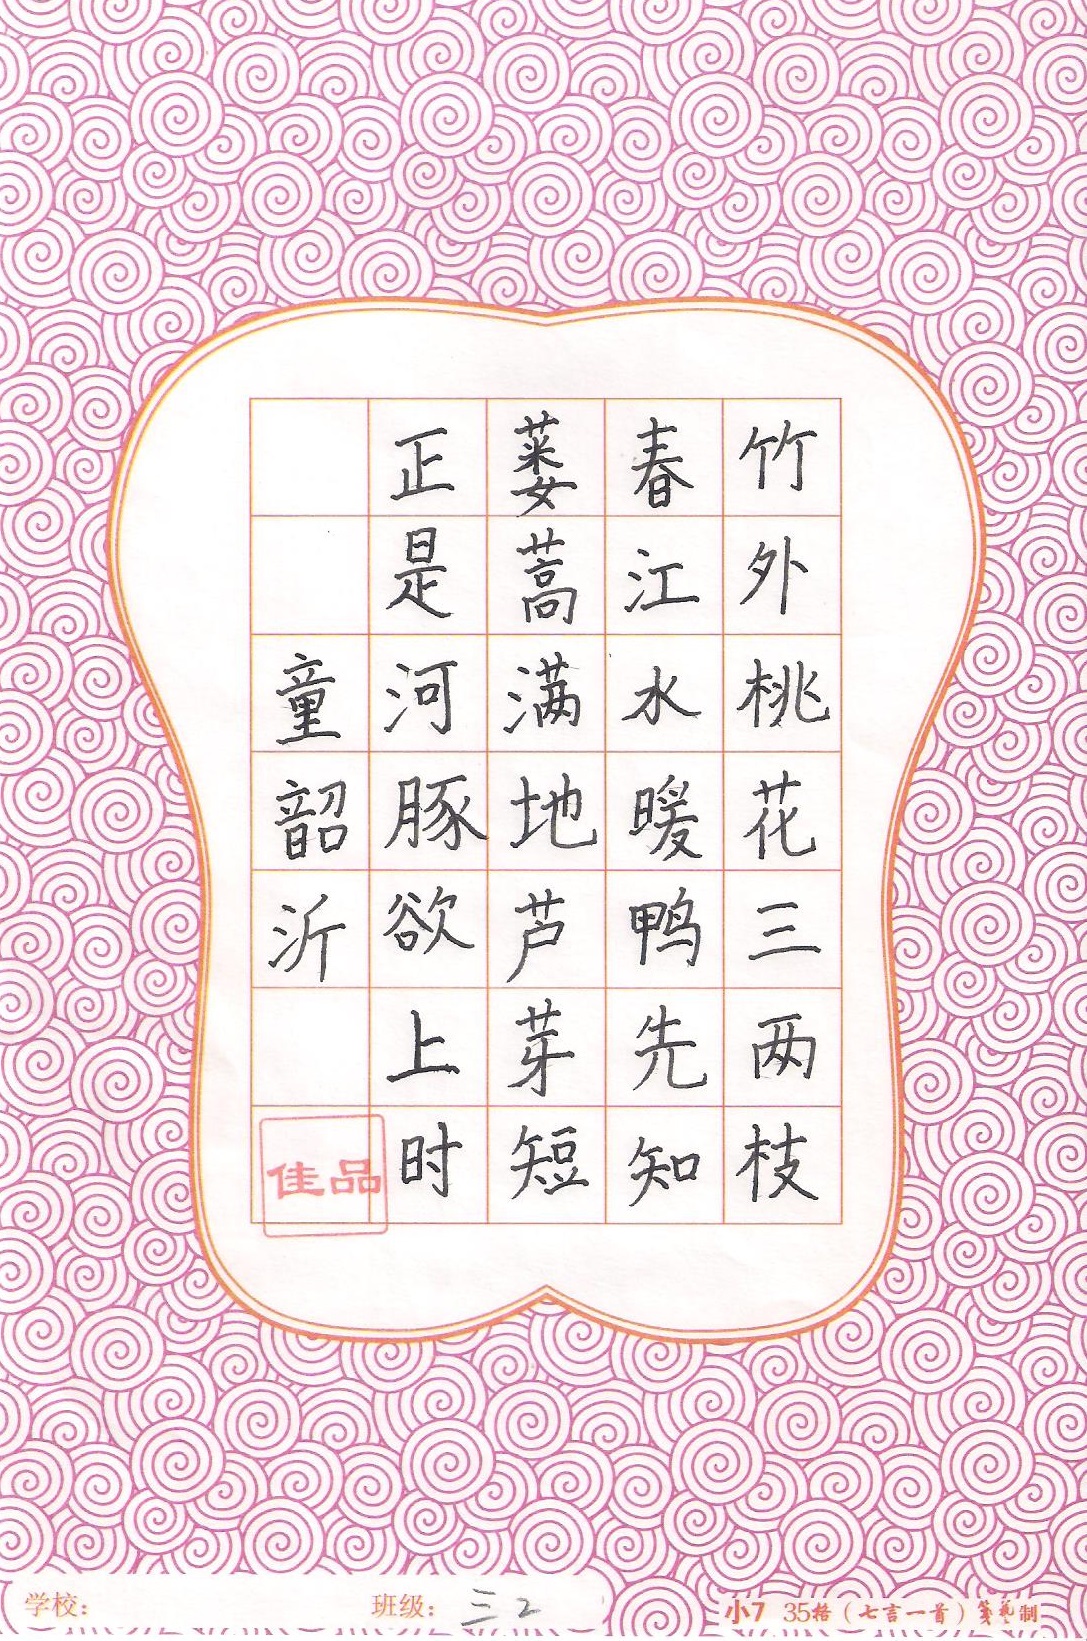 竹外桃花三两枝
春江水暖鸭先知
蒌蒿满地芦芽短
正是河豚欲上时
童韶沂
佳品
学校：
班级：三2
小7 35格（七言一首）笺艺制